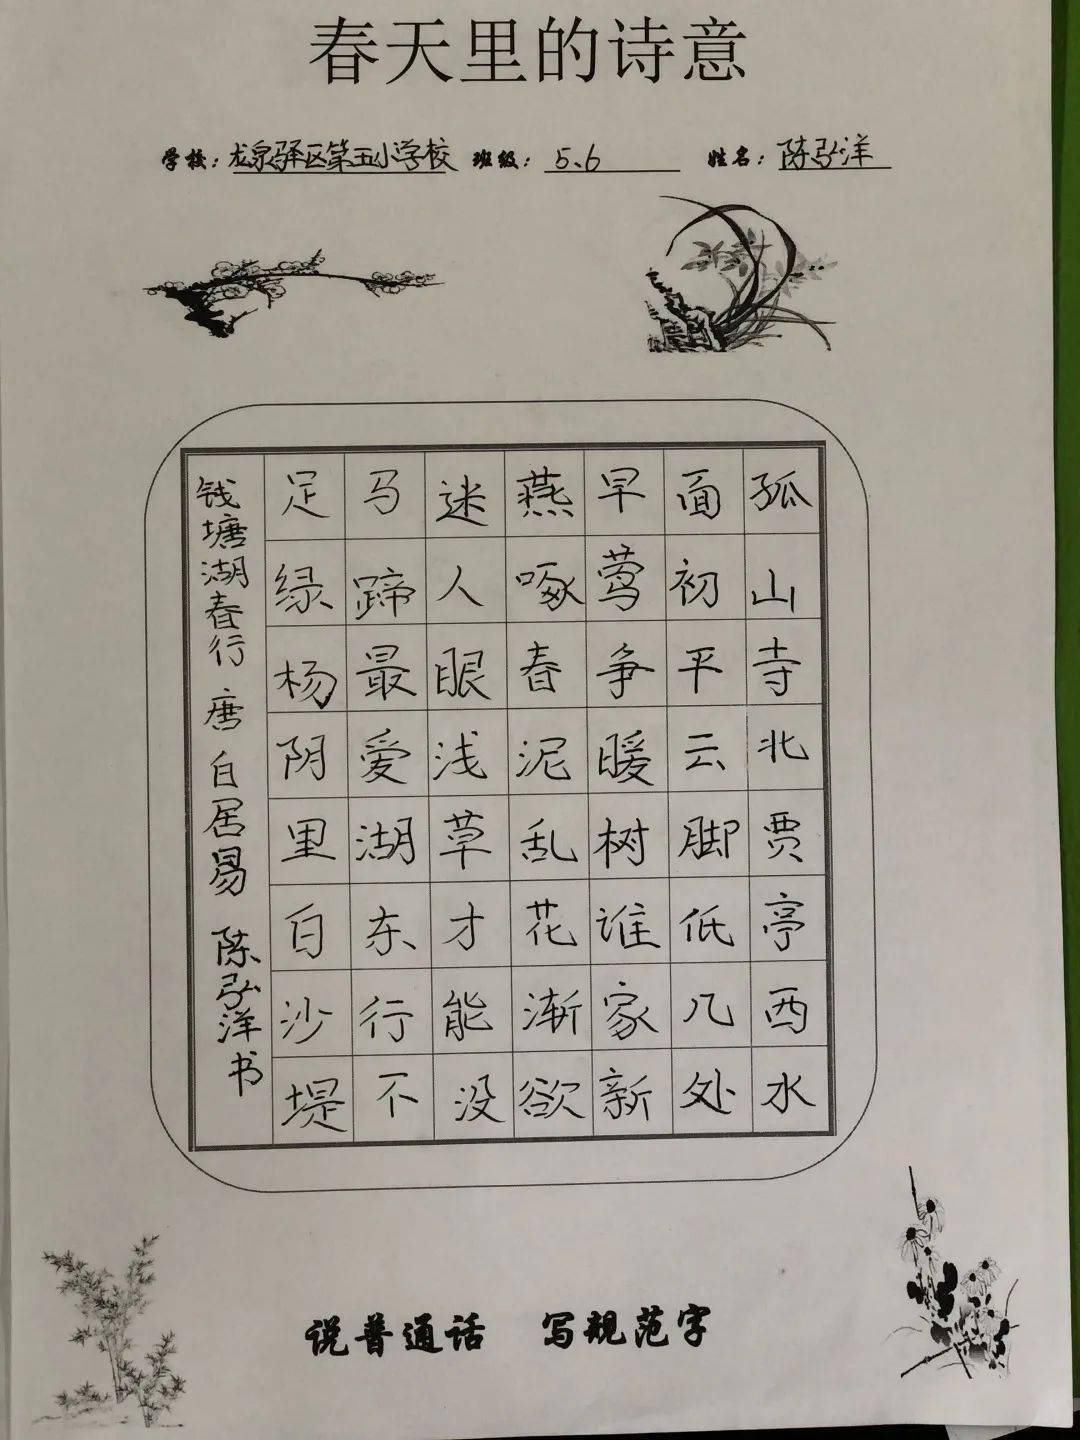 春天里的诗意
学校：龙泉驿区第五小学校 班级：5.6 姓名：陈弘洋
孤山寺北贾亭西水
面初平云脚低几处
早莺争暖树谁家新
燕啄春泥乱花渐欲
迷人眼浅草才能没
马蹄最爱湖东行不
足绿杨阴里白沙堤
钱塘湖春行 唐 白居易 陈弘洋书
说普通话 写规范字